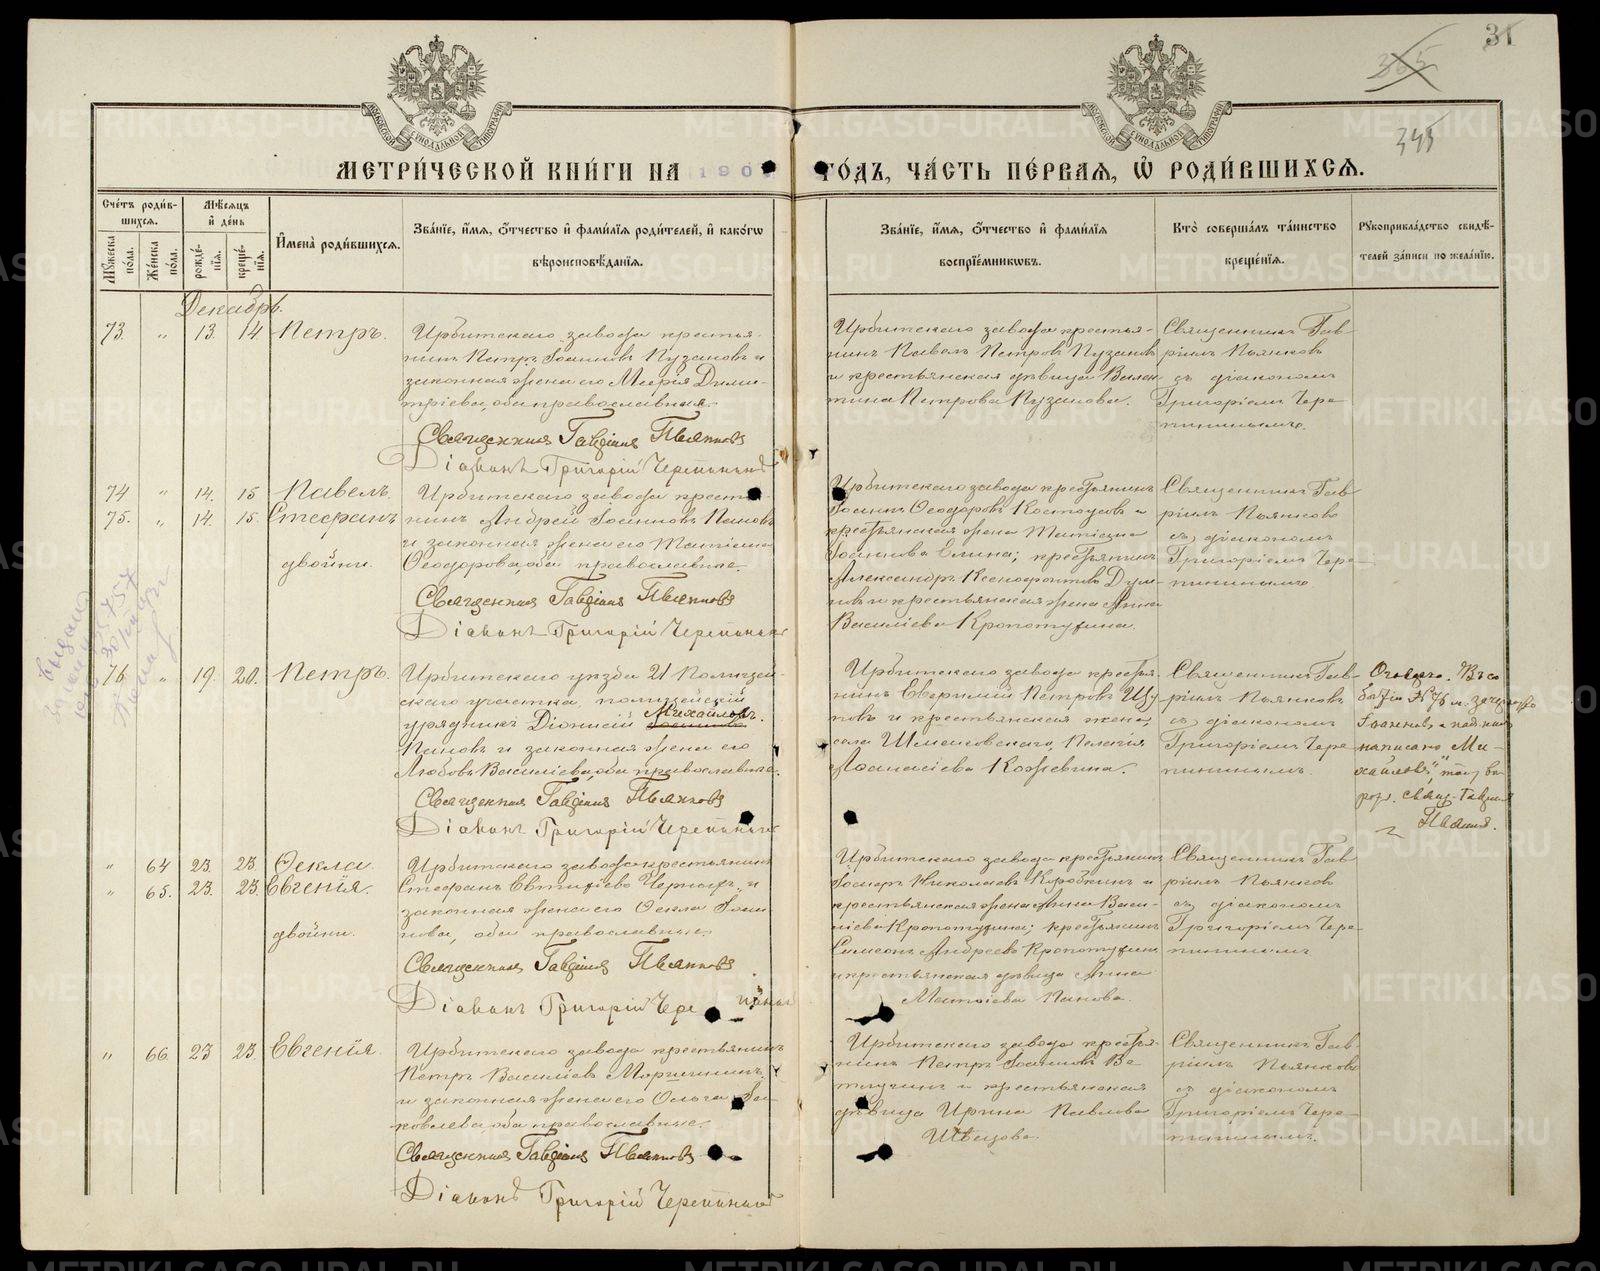 31
365
345
МЕТРИ́ЧЕСКОЙ КНИ́ГИ НА 190
ГО́ДЪ, ЧА́СТЬ ПЕ́РВАѦ, Ѡ҆ РОДИ́ВШИХСѦ.
Сче́тъ роди́вшихсѧ.
Му́жеска по́ла.
Же́нска по́ла.
Мѣ́сѧцъ и҆ де́нь
рожде́нїѧ.
креще́нїѧ.
И҆мена̀ роди́вшихсѧ.
Зва́нїе, и҆́мѧ, ѻ҆́тчество и҆ фами́лїѧ роди́телей, и҆ како́гѡ
вѣроисповѣ́данїѧ.
Зва́нїе, и҆́мѧ, ѻ҆́тчество и҆ фами́лїѧ
воспрїе́мникѡвъ.
Кто̀ соверша́лъ та́инство
креще́нїѧ.
Рꙋкоприкла́дство свидѣ́-
телей за́писи по жела́нїю.
Декабрь.
73 " 13. 14. Петръ.
Ирбитскаго завода крестья-
нинъ Петръ Іоанновъ Пузановъ и
законная жена его Марія Дими-
тріева, оба православные.
Священникъ Гавріилъ Пьянковъ
Діаконъ Григорій Черепанинъ
Ирбитскаго завода крестья-
нинъ Павелъ Петровъ Пузановъ
и крестьянская дѣвица Вален-
тина Петрова Пузанова.
Священникъ Гав-
ріилъ Пьянковъ
съ діакономъ
Григоріемъ Чере-
74 " 14. 15 Павелъ.
75. " 14. 15. Стефанъ
двойни.
Ирбитскаго завода крестья-
нинъ Андрей Іоанновъ Пановъ
и законная жена его Татіана
Ѳеодорова, оба православные.
Священникъ Гавріилъ Пьянковъ
Діаконъ Григорій Черепанинъ
Ирбитскаго завода крестьянинъ
Іоаннъ Ѳеодоровъ Костоусовъ и
крестьянская жена Татіана
Іоаннова Елина; крестьянинъ
Александръ Ксенофонтовъ Дум-
новъ и крестьянская жена Анна
Василіева Кропотухина.
Священникъ Гав-
ріилъ Пьянковъ
съ діакономъ
Григоріемъ Чере-
76 " 19. 20. Петръ.
Ирбитскаго уѣзда 21 Полицей-
скаго участка, полицейскій
урядникъ Діонисій Михайловъ.
Пановъ и законная жена его
Любовь Василіева, оба православные.
Священникъ Гавріилъ Пьянковъ
Діаконъ Григорій Черепанинъ
Ирбитскаго завода крестья-
нинъ Евфимій Петровъ Шу
товъ и крестьянская жена,
села Шмаковскаго, Пелагія
Аѳанасіева Кожевина.
Священникъ Гав-
ріилъ Пьянковъ
съ діакономъ
Григоріемъ Чере-
написано Ми-
хайловъ",
свящ. Гавріилъ
" 64 23. 23. Ѳекла.
" 65. 23. 23. Евгенія.
двойни.
Ирбитскаго завода крестьянинъ
Стефанъ Евтихіевъ Черныхъ и
законная жена его Ѳекла Іоан-
нова, оба православные.
Священникъ Гавріилъ Пьянковъ
Діаконъ Григорій Чере
Ирбитскаго завода крестьянинъ
Николаевъ Коробкинъ и
крестьянская жена Анна Васи-
ліева Кропотухина; крестьянинъ
Симеонъ Андреевъ Кропотухинъ
и крестьянская дѣвица Анна
Матѳіева Панова.
Священникъ Гав-
ріилъ Пьянковъ
съ діакономъ
Григоріемъ Чере-
" 66 23 23. Евгенія.
Ирбитскаго завода крестьянинъ
Петръ Василіевъ Моргинчинъ,
и законная жена его Ольга Іа-
ковлева, оба православные.
Священникъ Гавріилъ Пьянковъ
Діаконъ Григорій Черепанинъ
Ирбитскаго завода крестья-
нинъ Петръ Іоанновъ Ве-
тлугинъ и крестьянская
дѣвица Ирина Павлова
Швецова.
Священникъ Гав-
ріилъ Пьянковъ
съ діакономъ
Григоріемъ Чере-
METRIKI.GASO-URAL.RU